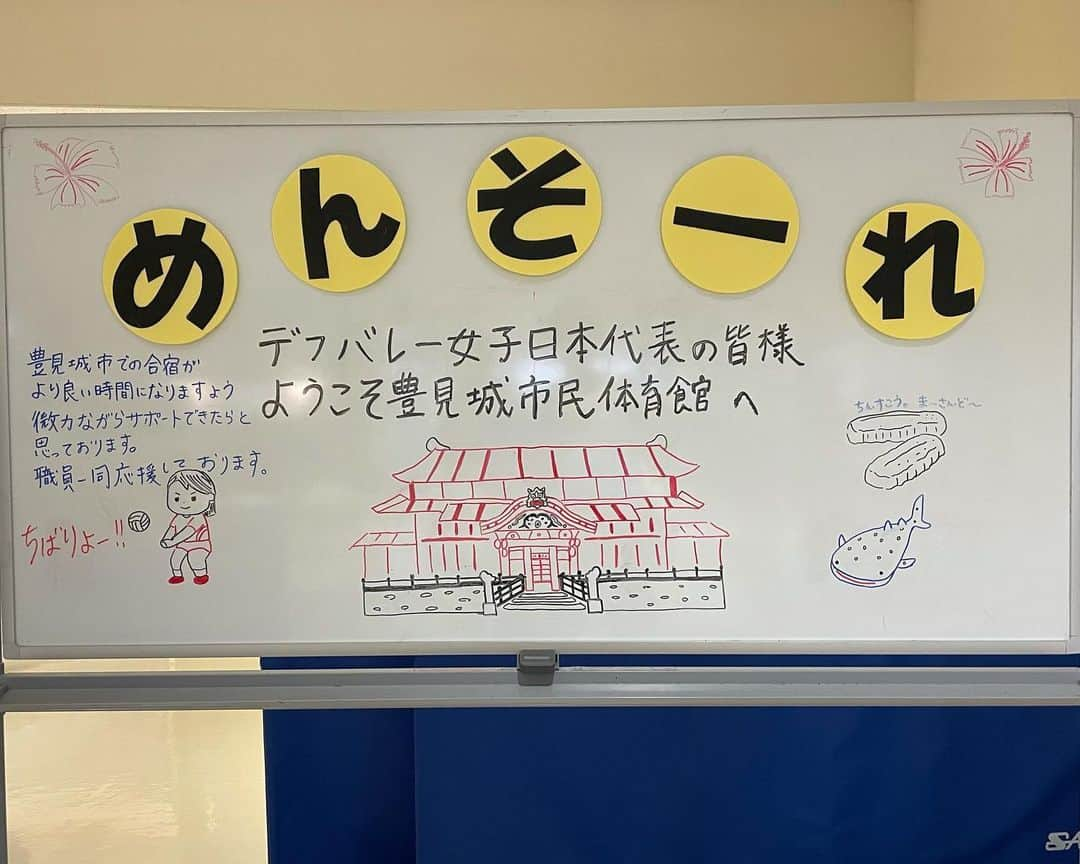 めんそーれ
デフバレー女子日本代表の皆様
ようこそ豊見城市民体育館へ
豊見城市での合宿が
より良い時間になりますよう
微力ながらサポートできたらと
思っております。
職員一同応援しております。
ちばりよー!!
ちんすこう。まーさんど〜
SA